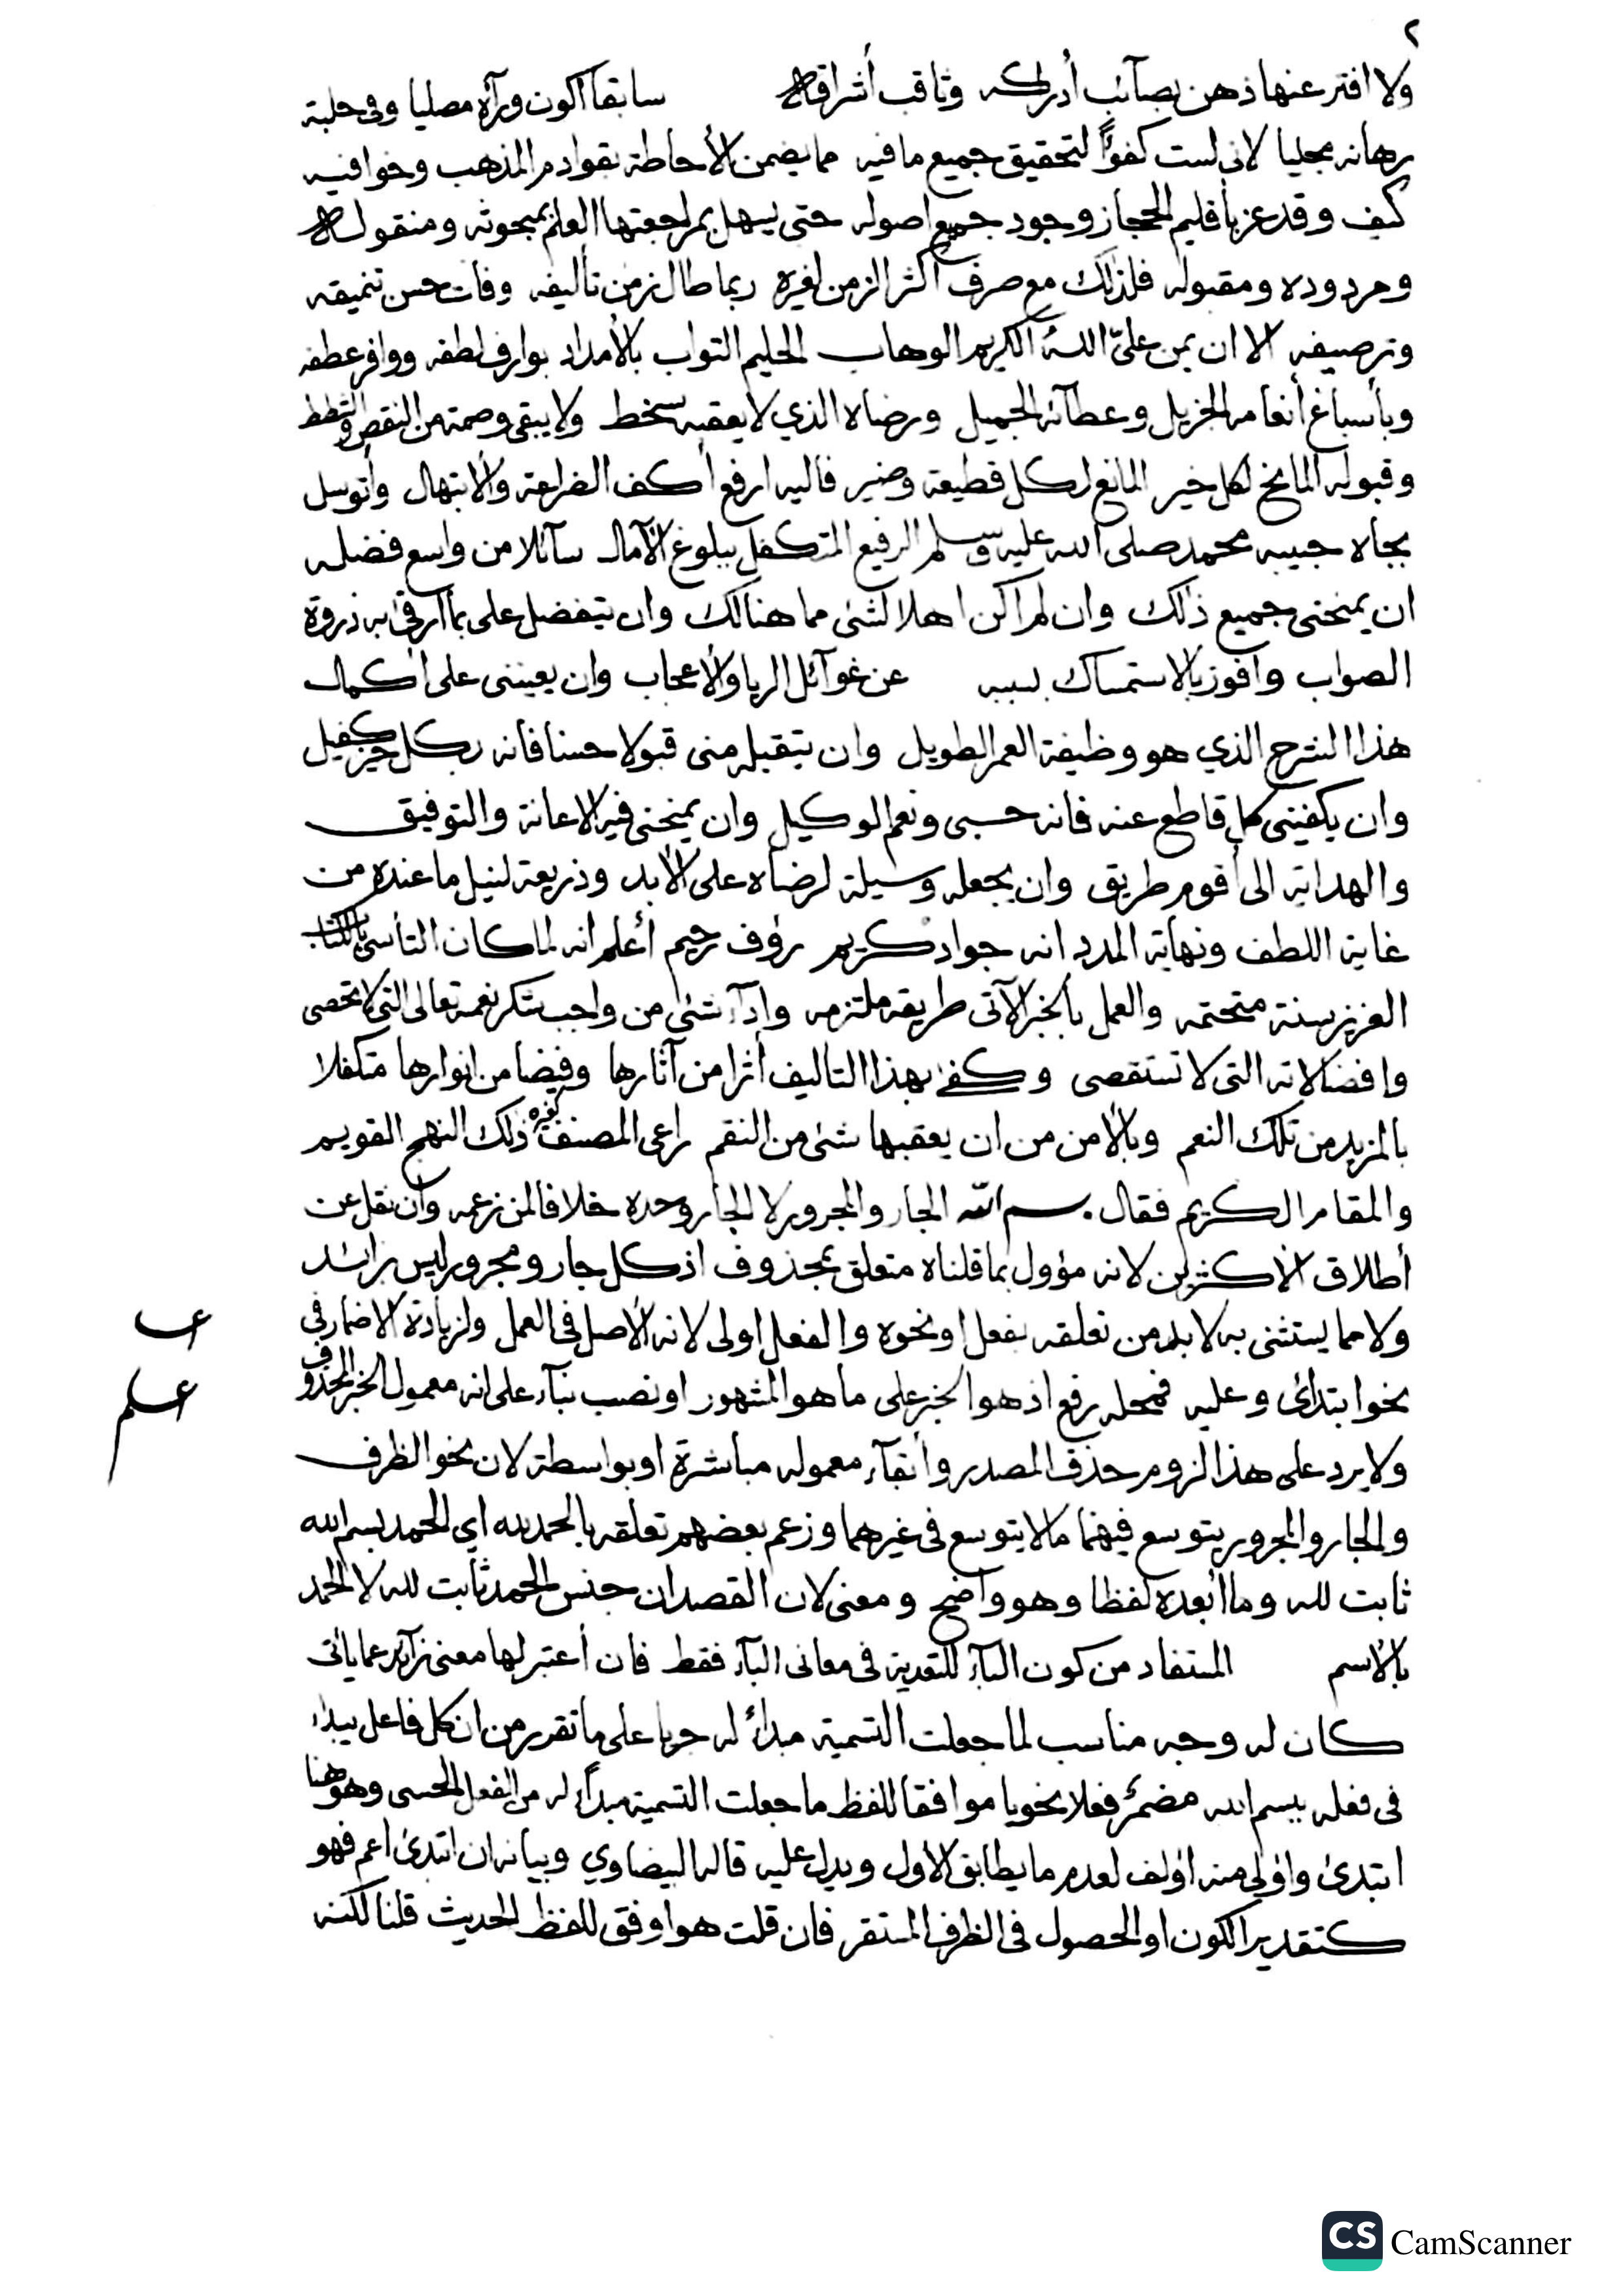 ٢
ولا افتر عنها ذهن بصآئب أدراكه وثاقب أشراقه سابقا أكون ورآه مصليا وفى حلبة
رهانه مجليا لانى لست كفوًا لتحقيق جميع ما فيه مما يضمن الأحاطة بقوادم المذهب وخوافيه
كيف وقد عز بأقليم الحجاز وجود جميع اصوله حتى يسهل بمراجعتها العلم بمبحوثه ومنقوله
ومردوده ومقبوله فلذلك مع صرف أكثر الزمن لغيره ربما طال زمن تأليفه وفات حسن تنميقه
وترصيفه الا ان يمن علىّ اللهُ الكريم الوهاب الحليم التواب بالأمداد بوارف لطفه ووافر عطفه
وبأسباغ أنعامه الجزيل وعطآئه الجميل ورضاه الذي لا يعقبه سخط ولا يبقى وصمة من النقص والشطط
وقبوله المانح لكل خير المانع لكل قطيعة وضير فاليه ارفع أكف الضراعة والأبتهال وأتوسل
بجاه حبيبه محمد صلى الله عليه وسلم الرفيع المتكفل ببلوغ الآمال سآئلا من واسع فضله
ان يمنحنى جميع ذلك وان لم اكن اهلا لشئ مما هنالك وان يتفضل على بما أرقى به ذروة
الصواب وأفوز بالاستمساك بسببه عن غوآئل الريا والأعجاب وان يعيننى على أكمال
هذا الشرح الذي هو وظيفة العمر الطويل وان يتقبله منى قبولا حسنا فانه بكل خير كفيل
وان يكفينى كل قاطع عنه فانه حسبى ونعم الوكيل وان يمنحنى فيه الاعانة والتوفيق
والهداية الى أقوم طريق وان يجعله وسيلة لرضاه على الأبد وذريعة لنيل ما عنده من
غاية اللطف ونهاية المدد انه جواد كريم رؤف رحيم أعلم انه لما كان التأسى بالكتاب
العزيز سنة متحتمه والعمل بالخبر الآتى طريقه ملتزمه وادآء شئ من واجب شكر نعمه تعالى التى لا تحصى
وافضالاته التى لا تستقصى وكفى بهذا التاليف أثرا من آثارها وفيضا من انوارها متكفلا
بالمزيد من تلك النعم وبالأمن من ان يعقبها شئ من النقم راعى المصنف كغيره ذلك النهج القويم
والمقام الكريم فقال. بسم الله الجار والمجرور لا الجار وحده خلافا لمن زعمه وان نقل عن
أطلاق الأكثرين لانه مؤول بما قلناه متعلق بمحذوف اذ كل جار ومجرور ليس بزائد
ولا مما يستثنى به لا بد من تعلقه بفعل او نحوه والفعل اولى لانه الأصل فى العمل ولزيادة الاضمار فى
نحو ابتدائى وعليه فمحله رفع اذ هو الخبر على ما هو المشهور او نصب بنآء على انه معمول الخبر المحذوف
ولا يرد على هذا لزوم حذف المصدر وأبقآء معموله مباشرة او بواسطة لان نحو الظرف
والجار والمجرور يتوسع فيهما ما لا يتوسع فى غيرهما وزعم بعضهم تعلقه بالحمد لله اي الحمد بسم الله
ثابت لله وما أبعده لفظا وهو واضح ومعنى لان القصد ان جنس الحمد ثابت لله لا الحمد
بالأسم المستفاد من كون البآء للتعدية فى معانى البآء فقط فان أعتبر لها معنى زآئد عما يأتى
كان له وجه مناسب لما جعلت التسمية مبدأ له جريا على ما تقرر من ان كل فاعل يبدأ
فى فعله ببسم الله مضمرٌ فعلا نحويا موافقا للفظ ما جعلت التسمية مبدأً له من الفعل الحسى وهو هنا
ابتدئ واولى منه اؤلف لعدم ما يطابق الاول ويدل عليه قاله البيضاوي وبيانه ان ابتدئ اعم فهو
كتقدير الكون او الحصول فى الظرف المستقر فان قلت هو اوفق للفظ الحديث قلنا لكنه
علم
CS CamScanner